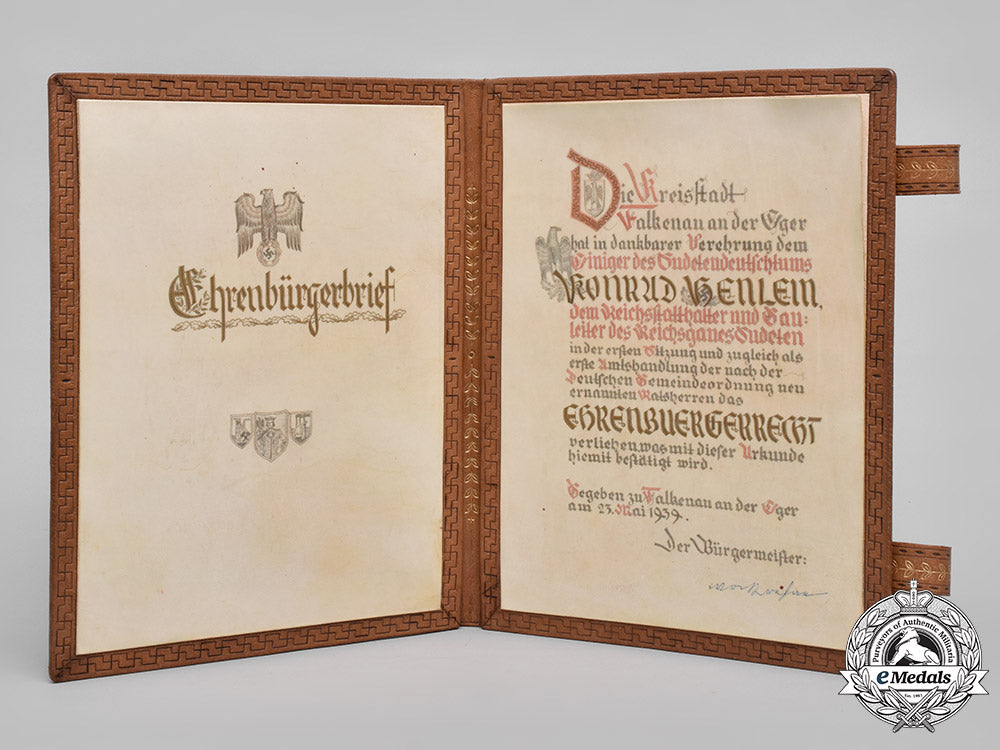 Ehrenbürgerbrief
Die Kreisstadt
Falkenau an der Eger
hat in dankbarer Verehrung dem
Einiger des Sudetendeutschtums
KONRAD HENLEIN,
dem Reichsstatthalter und Gau=
leiter des Reichsgaues Sudeten
in der ersten Sitzung und zugleich als
erste Amtshandlung der nach der
Deutschen Gemeindeordnung neu
ernannten Ratsherren das
EHRENBUERGERRECHT
verliehen, was mit dieser Urkunde
hiemit bestätigt wird.
Gegeben zu Falkenau an der Eger
am 23. Mai 1939.
Der Bürgermeister:
Purveyors of Authentic Militaria
eMedals